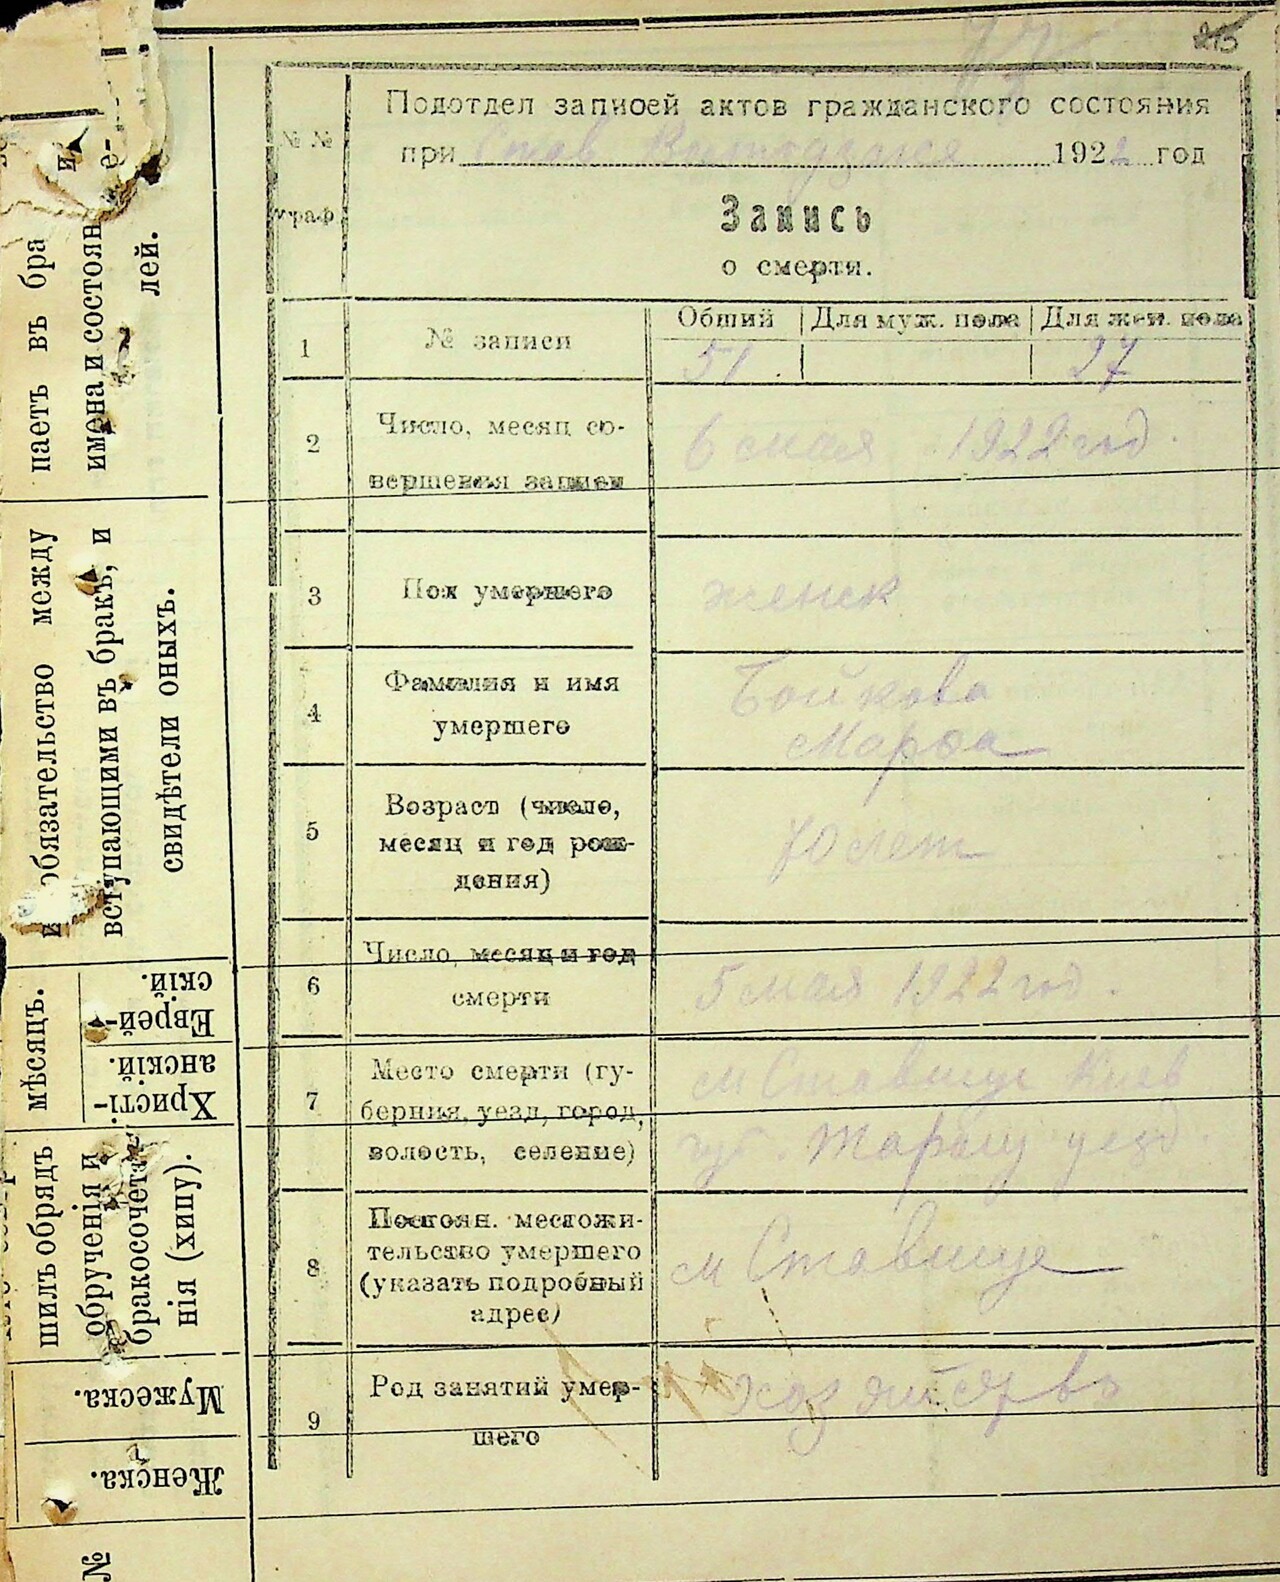 215
Подотдел записей актов гражданского состояния
при Став. 1922 год
Запись
о смерти.
№ №
граф
1
№ записи
Общий Для муж. пола Для жен. пола
51 27
2
Число, месяц со-
вершения записи
6 мая 1922 год.
3
Пол умершего
женск
4
Фамилия и имя
умершего
Бойкова
Марфа
5
Возраст (число,
месяц и год рож-
дения)
70 лет
6
Число, месяц и год
смерти
5 мая 1922 год.
7
Место смерти (гу-
берния, уезд, город,
волость, селение)
м Ставище Киев
губ. Таращ уезд.
8
Постоян. местожи-
тельство умершего
(указать подробный
адрес)
м Ставище
9
Род занятий умер-
шего
паетъ въ бра
имена и состоян
лей.
и обязательство между
вступающими въ бракъ, и
свидѣтели оныхъ.
мѣсяцъ.
Еврей-
скій.
Христі-
анскій.
шилъ обрядъ
обрученія и
бракосочета-
нія (хипу).
Мужеска.
Женска.
№